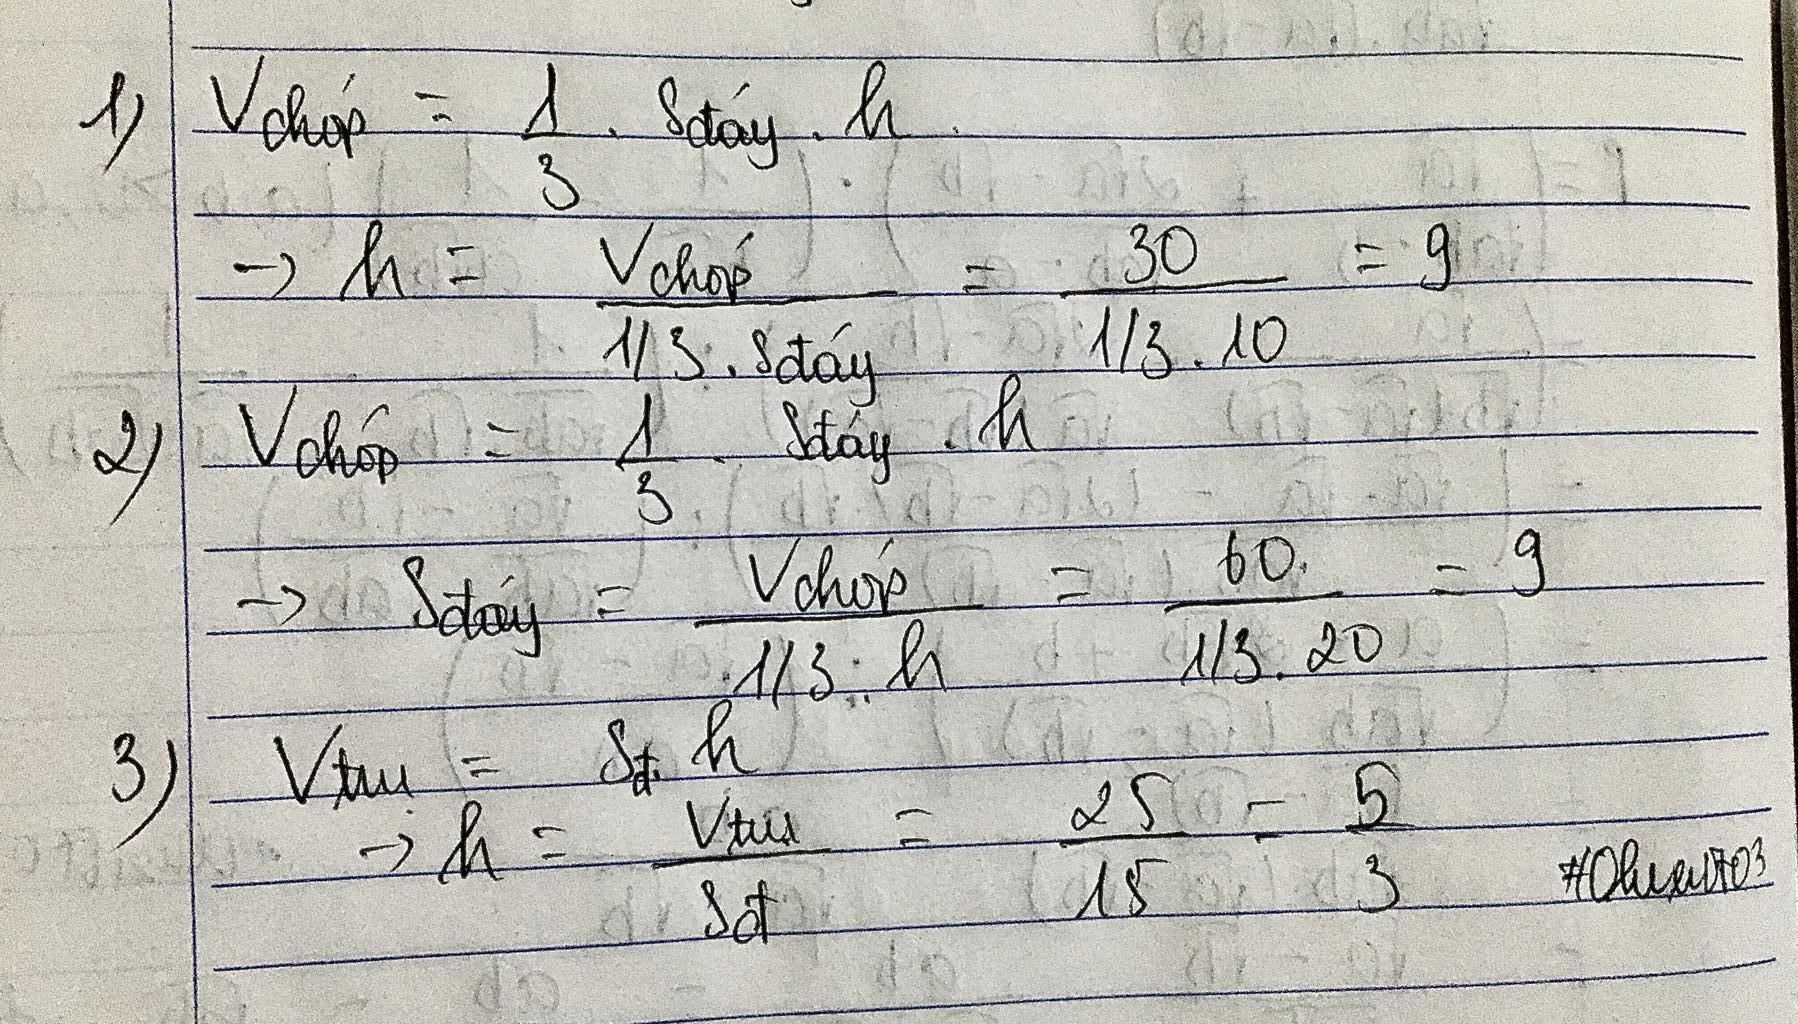 1) Vchóp = 1/3 . Sđáy . h
→ h = Vchóp / 1/3 . Sđáy = 30 / 1/3 . 10 = 9
2) Vchóp = 1/3 . Sđáy . h
→ Sđáy = Vchóp / 1/3 . h = 60 / 1/3 . 20 = 9
3) Vtru = Sđ. h
→ h = Vtru / Sđ = 25 / 15 = 5 / 3